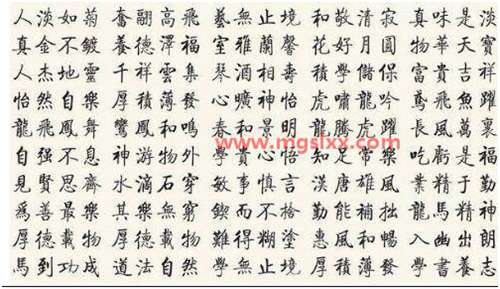 人淡如菊 奮翮高飛 藝無止境 和敬清寂 真味是淡
真金不鍍 養德澤福 室雅蘭馨 花好月圓 物華天寶
人杰地靈 千祥雲集 琴酒相壽 積學儲保 富貴吉祥
怡然自樂 厚積薄發 心曠神怡 虎嘯龍吟 鳶飛魚躍
龍飛鳳舞 鸞鳳和鳴 春和景明 龍騰虎躍 長風萬裏
www.mgslxx.com
自强不息 神游物外 學貴心 知足常樂 吃虧是福
見賢思齊 水滴石穿 敏事慎言 漢唐雄風 業精于勤
爲善最樂 其樂無窮 鍥而不捨 勤能補拙 龍馬精神
厚德載物 厚德載物 難得糊塗 惠風和暢 入幽出朗
馬到功成 道法自然 學無止境 厚積薄發 學書養志